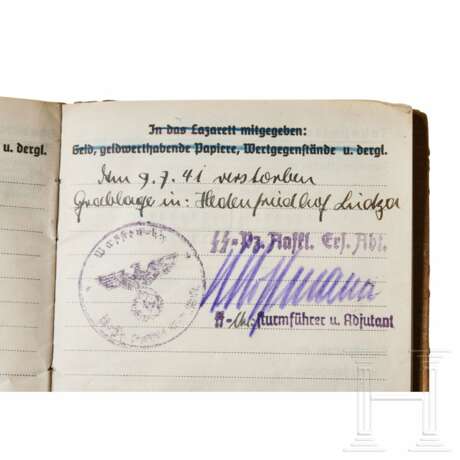 In das Lazarett mitgegeben:
u. dergl.
Geld, geldwerthabende Papiere, Wertgegenstände u. dergl.
Am 9.7.41 verstorben
Grablage in: Heldenfriedhof Ludza
Waffen-
SS-Pz. Aufkl. Ers. Abt.
SS-Unt.sturmführer u. Adjutant